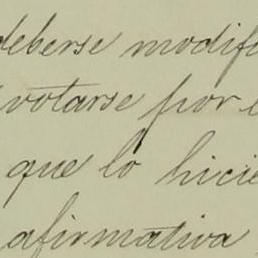 deberse modifi
votarse por e
que lo hicie
afirmativa